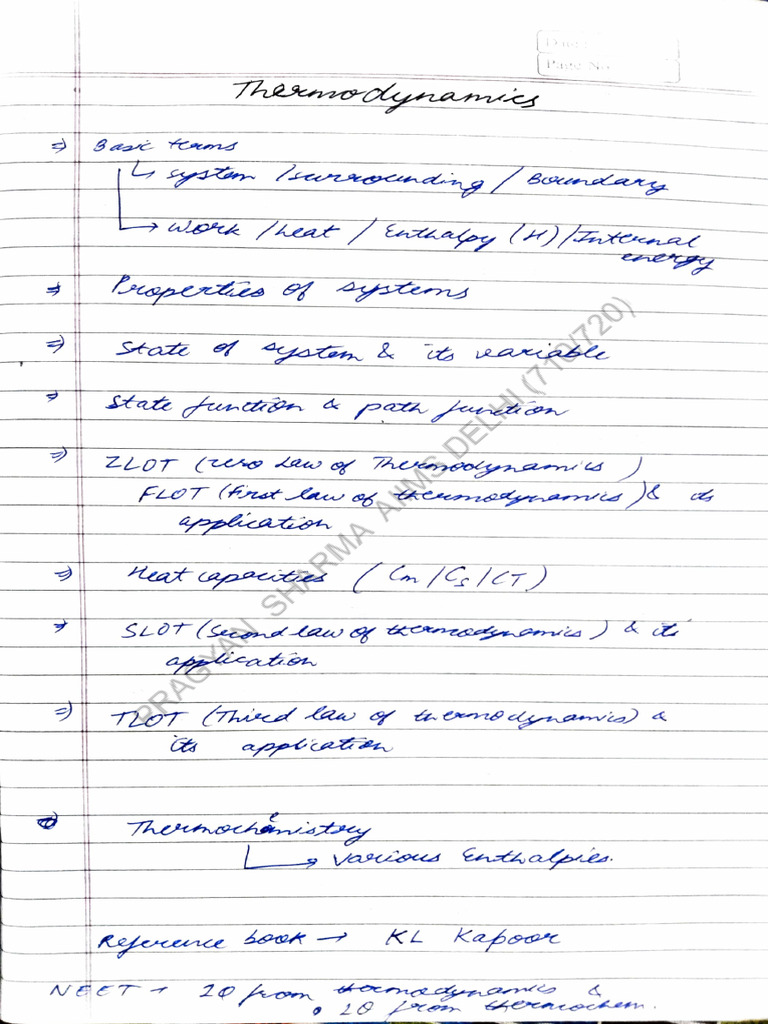 Date:
Page No.
Thermodynamics
⇒ Basic terms
↳ system / surrounding / Boundary
→ Work / heat / Enthalpy (H) / Internal
energy
⇒ Properties of systems
⇒ State of system & its variable
⇒ State function & path function
⇒ ZLOT (zero Law of Thermodynamics)
FLOT (First law of thermodynamics) & its
application
⇒ Heat capacities (Cm / Cs / CT)
⇒ SLOT (Second law of thermodynamics) & its
application
⇒ TLOT (Third law of thermodynamics) &
its application
Thermochemistory
→ various Enthalpies.
Reference book → KL Kapoor
NEET → 2Q from thermodynamics &
2Q from thermochem.
PRAGYAN SHARMA AIIMS DELHI (710/720)